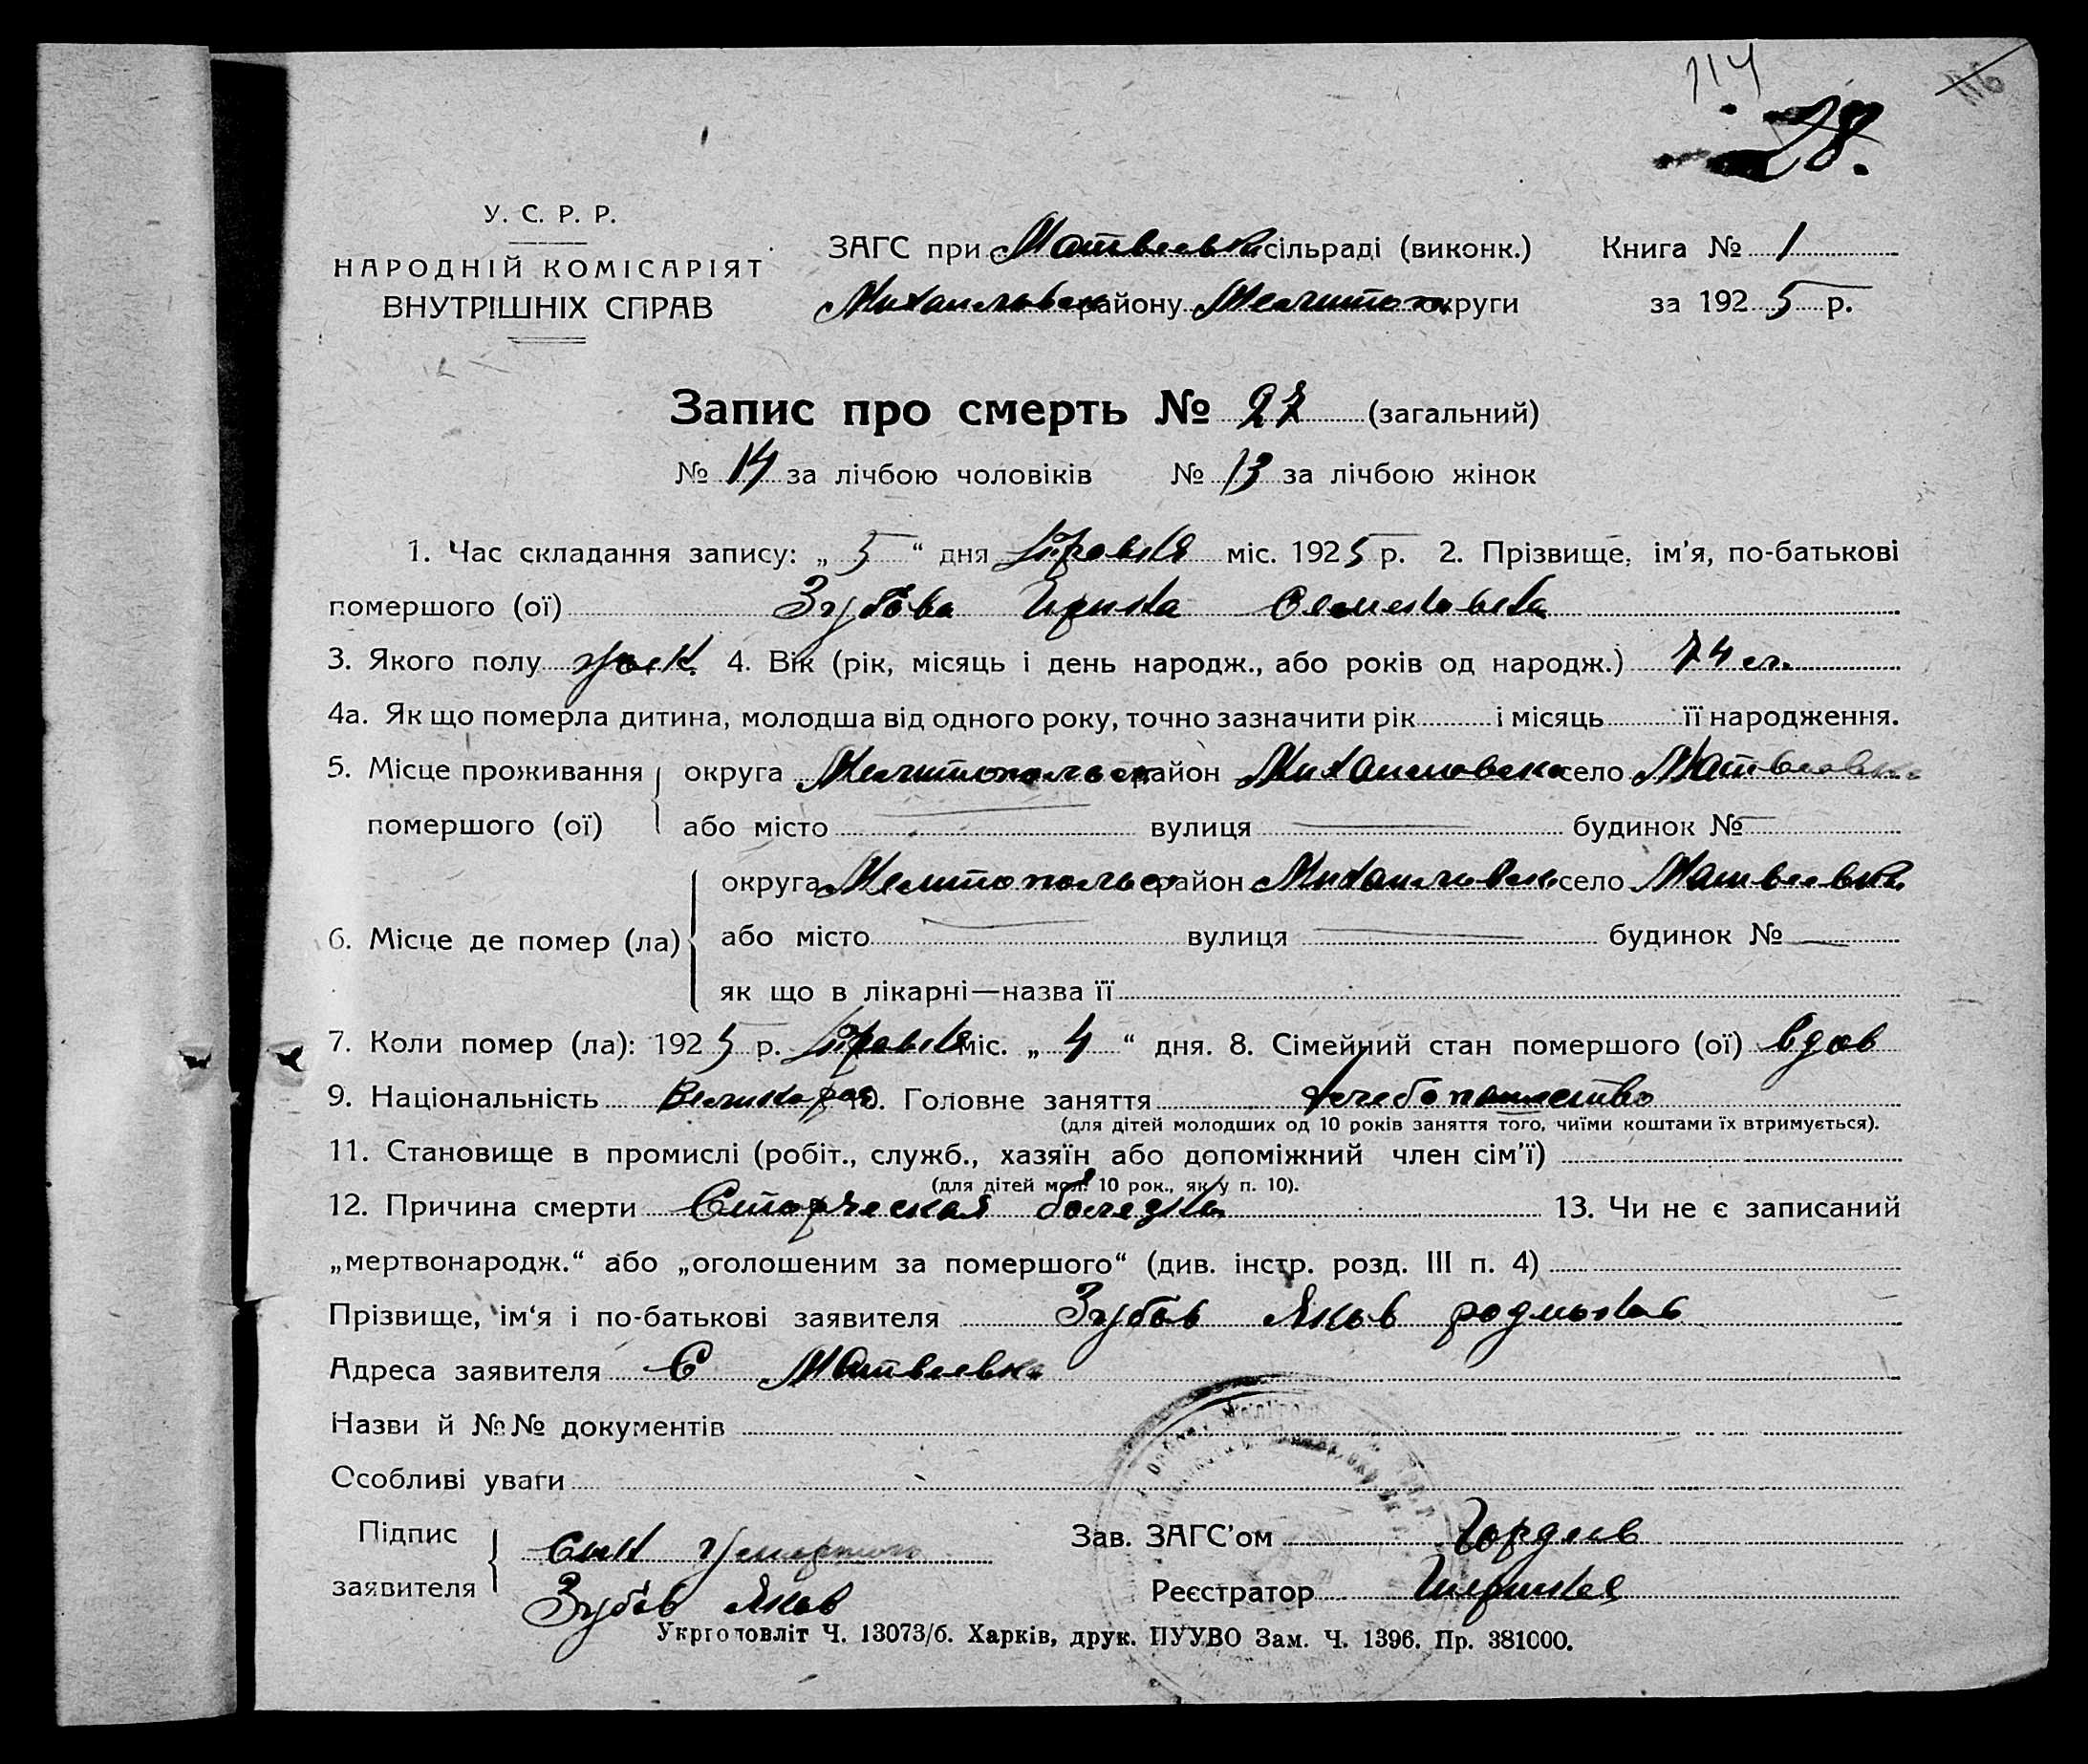 114
28.
У. С. Р. Р.
НАРОДНІЙ КОМІСАРІЯТ
ВНУТРІШНІХ СПРАВ
ЗАГС при Матвеевки сільраді (виконк.) Книга № 1
Михайловск району Мелитоп. округи за 1925 р.
Запис про смерть № 27 (загальний)
№ 14 за лічбою чоловіків № 13 за лічбою жінок
1. Час складання запису: „ 5 “ дня Травня міс. 1925 р. 2. Прізвище, ім’я, по-батькові
помершого (ої) Зубова Ирина Семеновна
3. Якого полу 4. Вік (рік, місяць і день народж., або років од народж.) 74
4а. Як що померла дитина, молодша від одного року, точно зазначити рік і місяць її народження.
5. Місце проживання округа Мелитопольск район Михайловска село Матвеевка
помершого (ої) або місто вулиця будинок №
округа Мелитопольс район Михайловск село Матвеевка
6. Місце де помер (ла) або місто вулиця будинок №
як що в лікарні—назва її
7. Коли помер (ла): 1925 р. Травня міс. „ 4 “ дня. 8. Сімейний стан помершого (ої) вдов
9. Національність Великорос 10. Головне заняття хлебопашество
(для дітей молодших од 10 років заняття того, чиїми коштами їх втримується).
11. Становище в промислі (робіт., служб., хазяїн або допоміжний член сім’ї)
(для дітей мол. 10 рок., як у п. 10).
12. Причина смерти Старческая болезнь 13. Чи не є записаний
„мертвонародж.“ або „оголошеним за помершого“ (див. інстр. розд. III п. 4)
Прізвище, ім‘я і по-батькові заявителя Зубов Яков родмонов
Адреса заявителя С Матвеевка
Назви й №№ документів
Особливі уваги
Підпис
заявителя
Сын умершой
Зубов Яков
Зав. ЗАГС’ом Гордеев
Реєстратор
Укрголовліт Ч. 13073/б. Харків, друк. ПУУВО Зам. Ч. 1396. Пр. 381000.